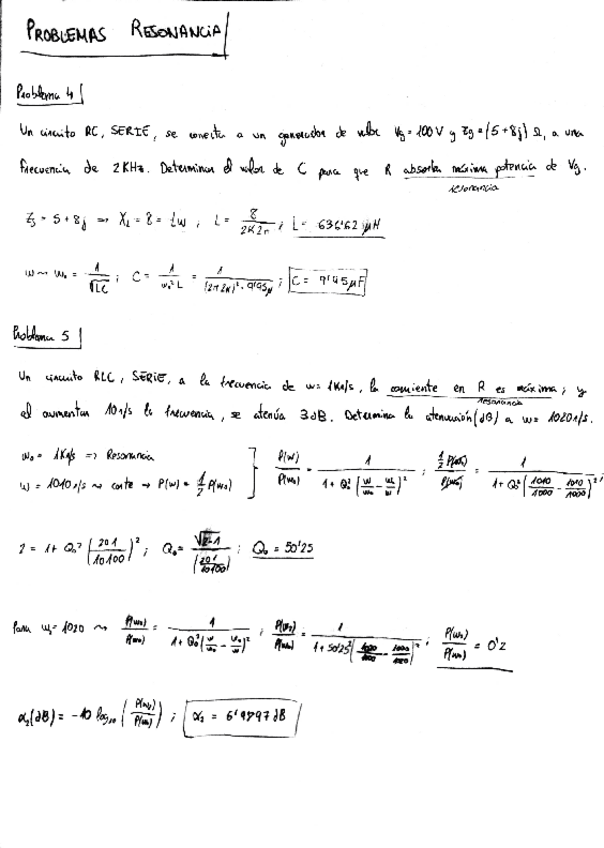 PROBLEMAS RESONANCIA
Problema 4
Un circuito RC, SERIE, se conecta a un generador de valor Vg = 100 V y Zg = (5 + 8j) Ω, a una
frecuencia de 2 KHz. Determinar el valor de C para que R absorba máxima potencia de Vg.
resonancia
Zg = 5 + 8j ⇒ XL = 8 = Lw ; L = 8 / 2K2π ; L = 636'62 μH
w ~ w₀ = 1/√LC ; C = 1/(w₀² L) = 1/((2π 2K)² · 9'95μ) ; C = 9'95 μF
Problema 5
Un circuito RLC, SERIE, a la frecuencia de w = 1Kr/s, la corriente en R es máxima ; y
resonancia
al aumentar 10 r/s la frecuencia, se atenúa 3dB. Determina la atenuación (dB) a w = 1020 r/s.
w₀ = 1Kr/s ⇒ Resonancia
w = 1010 r/s ~ corte → P(w) = 1/2 P(w₀)
P(w)/P(w₀) = 1/(1 + Q₀² (w/w₀ − w₀/w)²) ; 1/2 P(w₀)/P(w₀) = 1/(1 + Q₀² (1010/1000 − 1000/1010)²) ;
2 = 1 + Q₀² (201/10100)² ; Q₀ = √(2-1)/(201/10100) ; Q₀ = 50'25
Para w₂ = 1020 ~ P(w₂)/P(w₀) = 1/(1 + Q₀² (w/w₀ − w₀/w)²) ; P(w₂)/P(w₀) = 1/(1 + 50'25² (1020/1000 − 1000/1020)²) ; P(w₂)/P(w₀) = 0'2
α₂(dB) = −10 log₁₀ (P(w₂)/P(w₀)) ; α₂ = 6'9897 dB